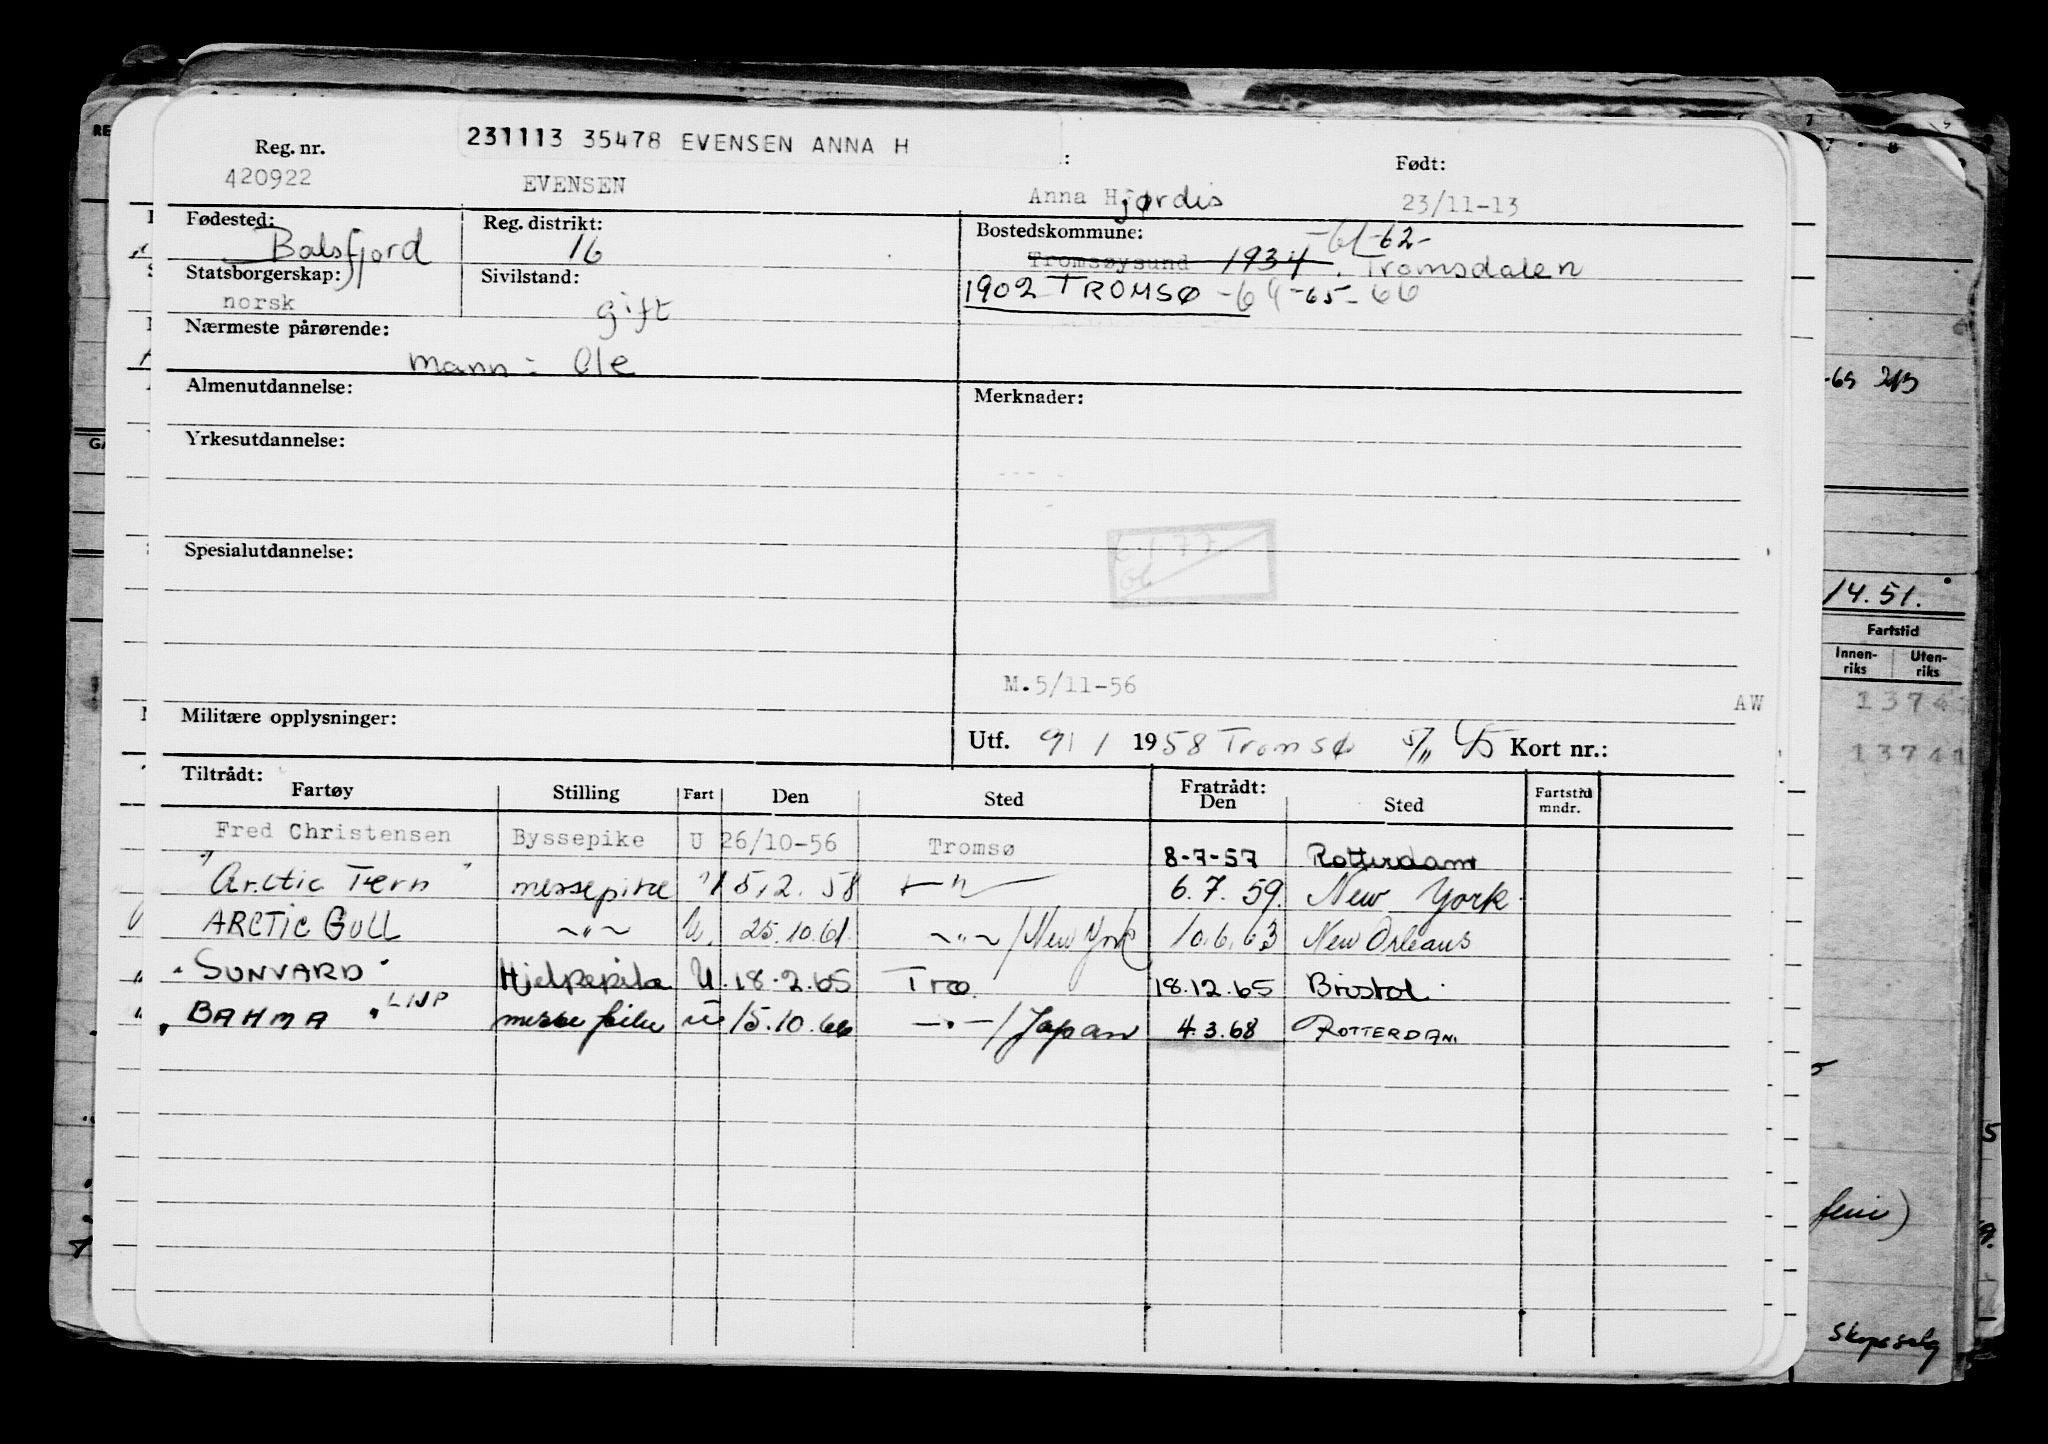 231113 35478 EVENSEN ANNA H
Reg. nr. : Født:
420922 EVENSEN Anna Hjørdis 23/11-13
Fødested: Reg. distrikt: Bostedskommune: -61-62-
Balsfjord 16 Tromsøysund 1934. Tromsdalen
Statsborgerskap: Sivilstand: 1902 TROMSØ -64-65-66
norsk gift
Nærmeste pårørende:
mann: Ole
Almenutdannelse: Merknader:
Yrkesutdannelse:
Spesialutdannelse:
M.5/11-56 AW
Militære opplysninger: Utf. 9/1 1958 Tromsø Kort nr.:
Tiltrådt: Fratrådt:
Fartøy Stilling Fart Den Sted Den Sted Fartstid mndr.
Fred Christensen Byssepike U 26/10-56 Tromsø 8-7-57 Rotterdam
"Arctic Tern" messepike " 5.2.58 —"— 6.7.59. New York
ARCTIC GULL ~"~ U. 25.10.61 ~"~/New York 10.6.63 New Orleans
"SUNVARD" Hjelpepike U. 18.2.65 Tro. 18.12.65 Bristol
"BAHMA" LINP messepike U 15.10.66 —"—/Japan 4.3.68 ROTTERDAM
14.51.
Fartstid
Innen-riks Uten-riks